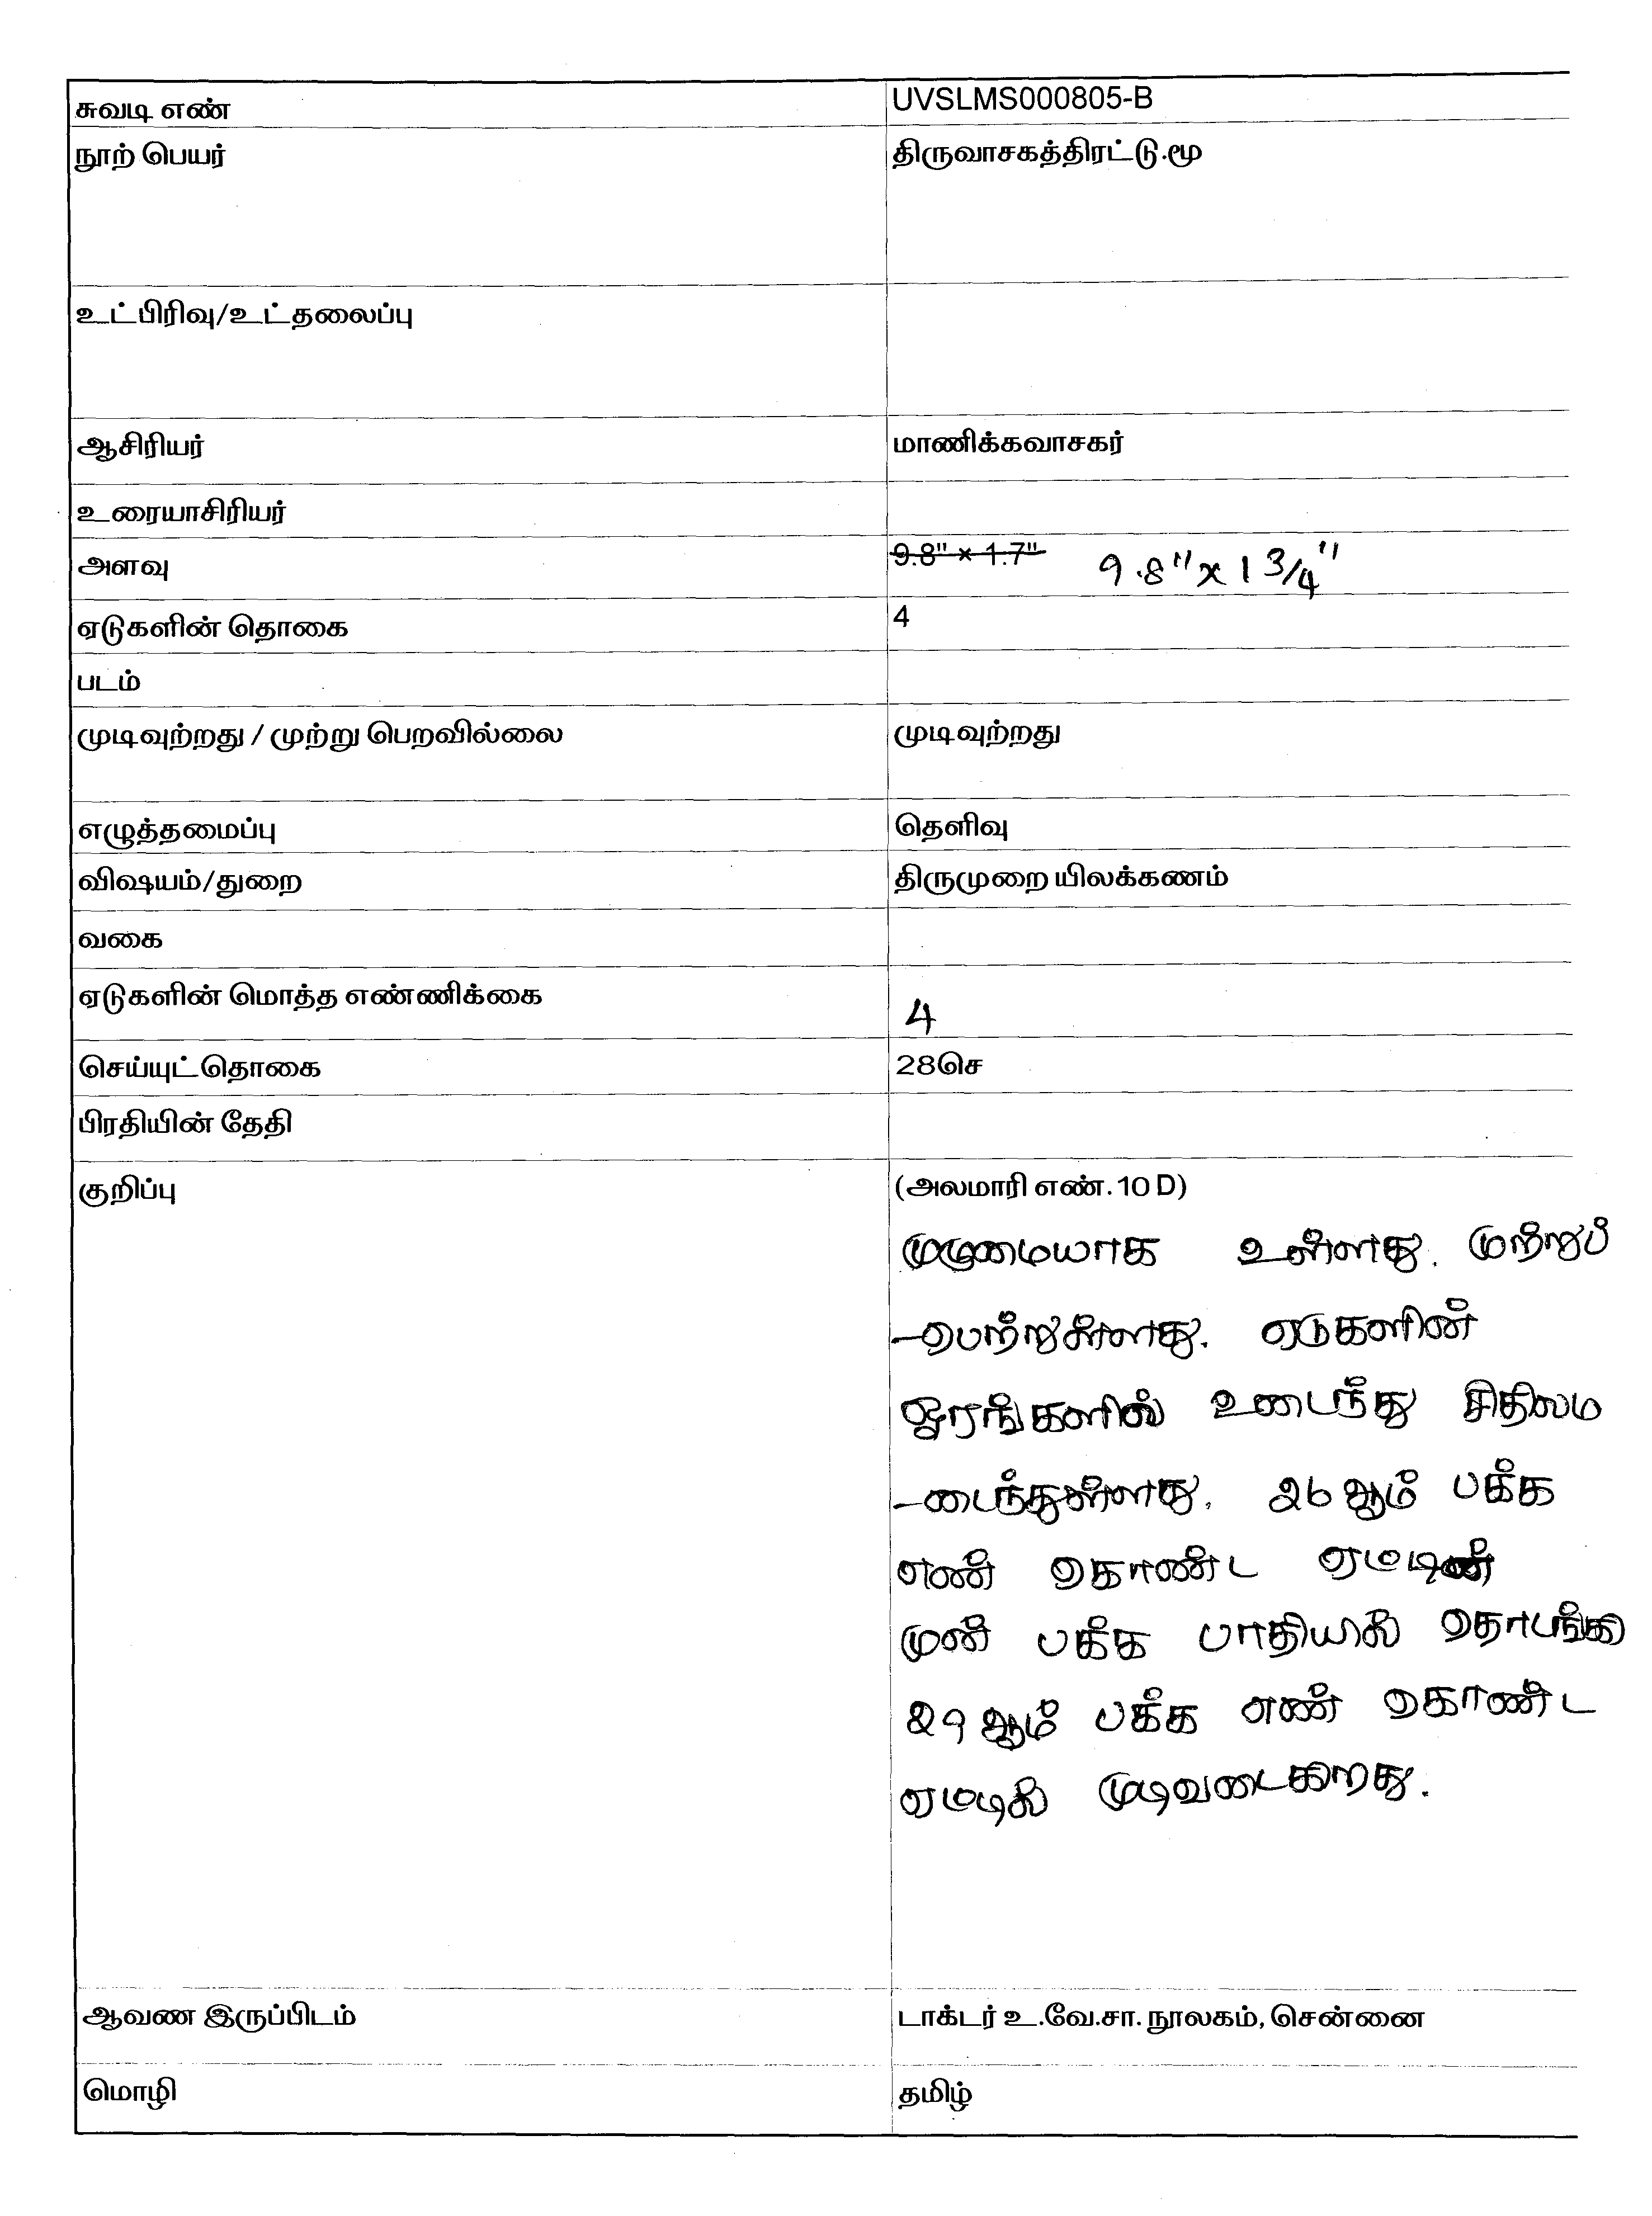 சுவடி எண் UVSLMS000805-B
நூற் பெயர் திருவாசகத்திரட்டு.மூ
உட்பிரிவு/உட்தலைப்பு
ஆசிரியர் மாணிக்கவாசகர்
உரையாசிரியர்
அளவு 9.8" × 1.7" 9.8" x 1 3/4"
ஏடுகளின் தொகை 4
படம்
முடிவுற்றது / முற்று பெறவில்லை முடிவுற்றது
எழுத்தமைப்பு தெளிவு
விஷயம்/துறை திருமுறை யிலக்கணம்
வகை
ஏடுகளின் மொத்த எண்ணிக்கை 4
செய்யுட்தொகை 28செ
பிரதியின் தேதி
குறிப்பு (அலமாரி எண். 10 D)
முழுமையாக உள்ளது. முற்றுப்
-பெற்றுள்ளது. ஏடுகளின்
ஓரங்களில் உடைந்து சிதிலம
-டைந்துள்ளது. ௨௬ஆம் பக்க
எண் கொண்ட ஏட்டின்
முன் பக்க பாதியில் தொடங்கி
௨௯ஆம் பக்க எண் கொண்ட
ஏட்டில் முடிவடைகிறது.
ஆவண இருப்பிடம் டாக்டர் உ.வே.சா. நூலகம், சென்னை
மொழி தமிழ்